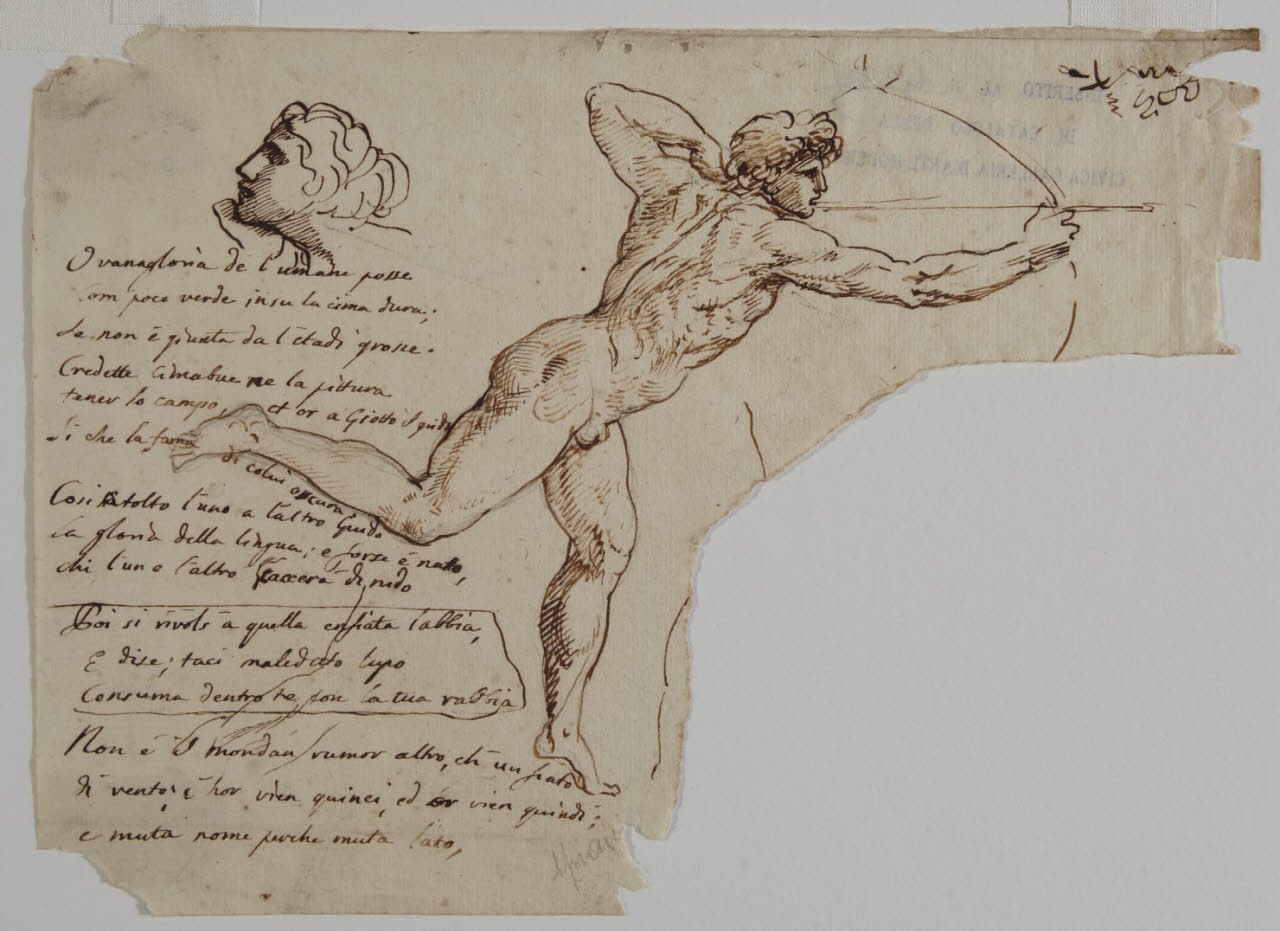 O vanagloria de l'umane posse
Com poco verde insu la cima dura;
Se non è giunta da l'etadi grosse.
Credette Cimabue ne la pittura
tener lo campo, et or a Giotto il grido
Si che la fama di colui oscura.
Cosi a tolto l'uno a l'altro Guido
La gloria della lingua; e forse è nato,
chi l'un e l'altro caccera di nido
Poi si rivols a quella enfiata labbia,
E dise; taci maledeto lupo
Consuma dentro te con la tua rabbia
Non è il mondan rumor altro, ch un fiato
di vento; è hor vien quinci, ed or vien quindi;
e muta nome perche muta lato,
INSERITO AL N.
DI CATALOGO DELLA
CIVICA GALLERIA D'ARTE MODERNA